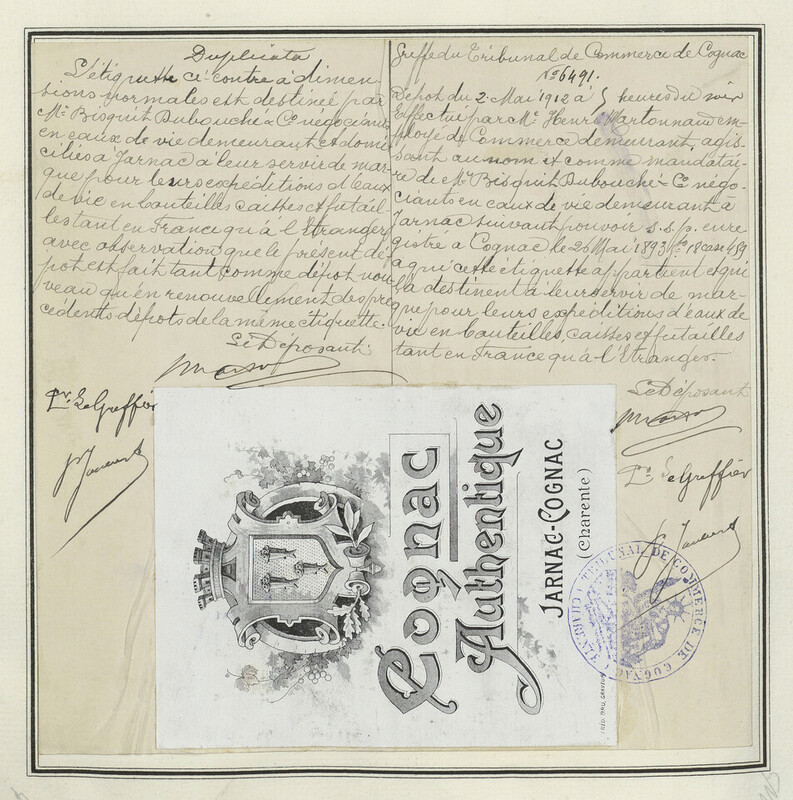 Duplicata
L'étiquette ci-contre à dimen-
sions normales est destinée par
Mrs Bisquit Dubouché & Ce négociants
en eaux de vie demeurant et domi
ciliés à Jarnac à leur servir de mar-
que pour leurs expéditions d'eaux
de vie en bouteilles caisses et futail
les tant en France qu'à l'Etranger
avec observation que le présent dé-
pôt est fait tant comme dépôt nou
veau qu'en renouvellement des pré
cédents dépôts de la même étiquette.
Le Déposant
Pr. Le Greffier
Greffe du Tribunal de Commerce de Cognac
No 6491.
Dépôt du 2 Mai 1912 à 5 heures du soir
Effectué par Mr Henri Martonnaud em-
ployé de Commerce demeurant, agis-
sant au nom et comme mandatai-
re de Mrs Bisquit Dubouché & Ce négo-
ciants en eaux de vie demeurant à
Jarnac suivant pouvoir s.s.p. enre
gistré à Cognac le 26 Mai 1893 fo 18 case 489
à qui cette étiquette appartient et qui
la destinent à leur servir de mar-
que pour leurs expéditions d'eaux de
vie en bouteilles, caisses et futailles
tant en France qu'à l'Etranger.
Le Déposant
Pr. Le Greffier
Cognac
Authentique
JARNAC-COGNAC
(Charente)
TRIBUNAL DE COMMERCE DE COGNAC
CHARENTE